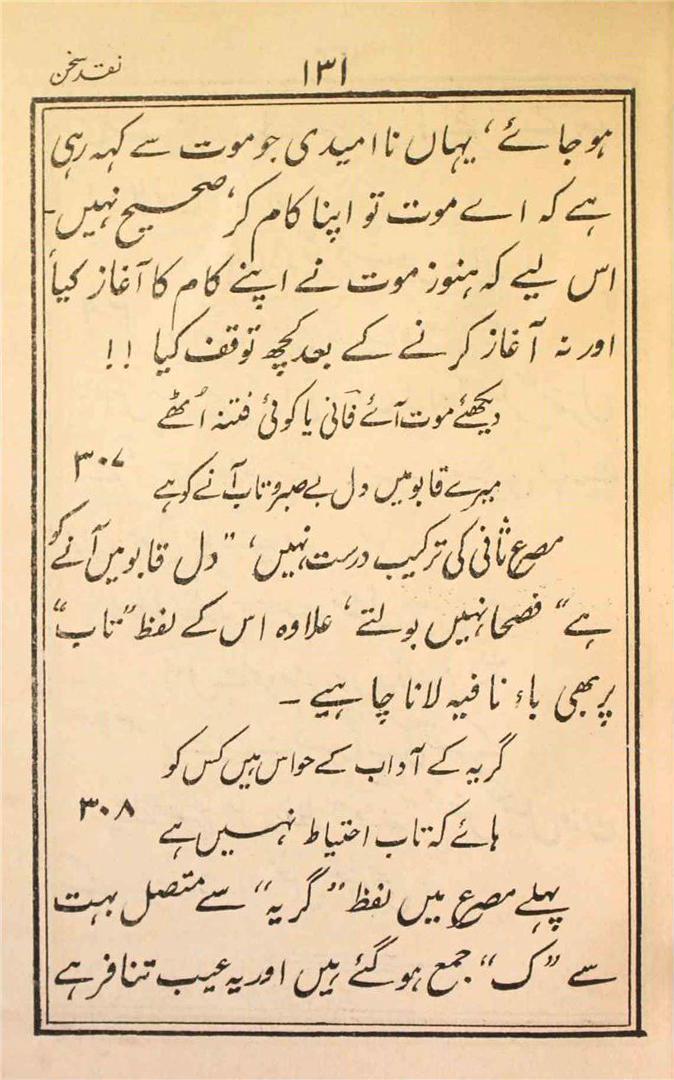 نقد سخن
۱۳۱
ہوجائے، یہاں ناامیدی جو موت سے کہہ رہی
ہے کہ اے موت تو اپنا کام کر، صحیح نہیں۔
اس لیے کہ ہنوز موت نے اپنے کام کا آغاز کیا
اور نہ آغاز کرنے کے بعد کچھ توقف کیا !!
دیکھئے موت آئے فانی یا کوئی فتنہ اُٹھے
۳۰۷
میرے قابو میں دل بے صبر و تاب آنے کو ہے
مصرع ثانی کی ترکیب درست نہیں، ”دل قابو میں آنے کو
ہے“ فصحا نہیں بولتے، علاوہ اس کے لفظ ”تاب“
پر بھی باء نافیہ لانا چاہیے ۔
گریہ کے آداب کے حواس ہیں کس کو
۳۰۸
ہائے کہ تاب احتیاط نہیں ہے
پہلے مصرع میں لفظ ”گریہ“ سے متصل بہت
سے ”ک“ جمع ہوگئے ہیں اور یہ عیب تنافر ہے